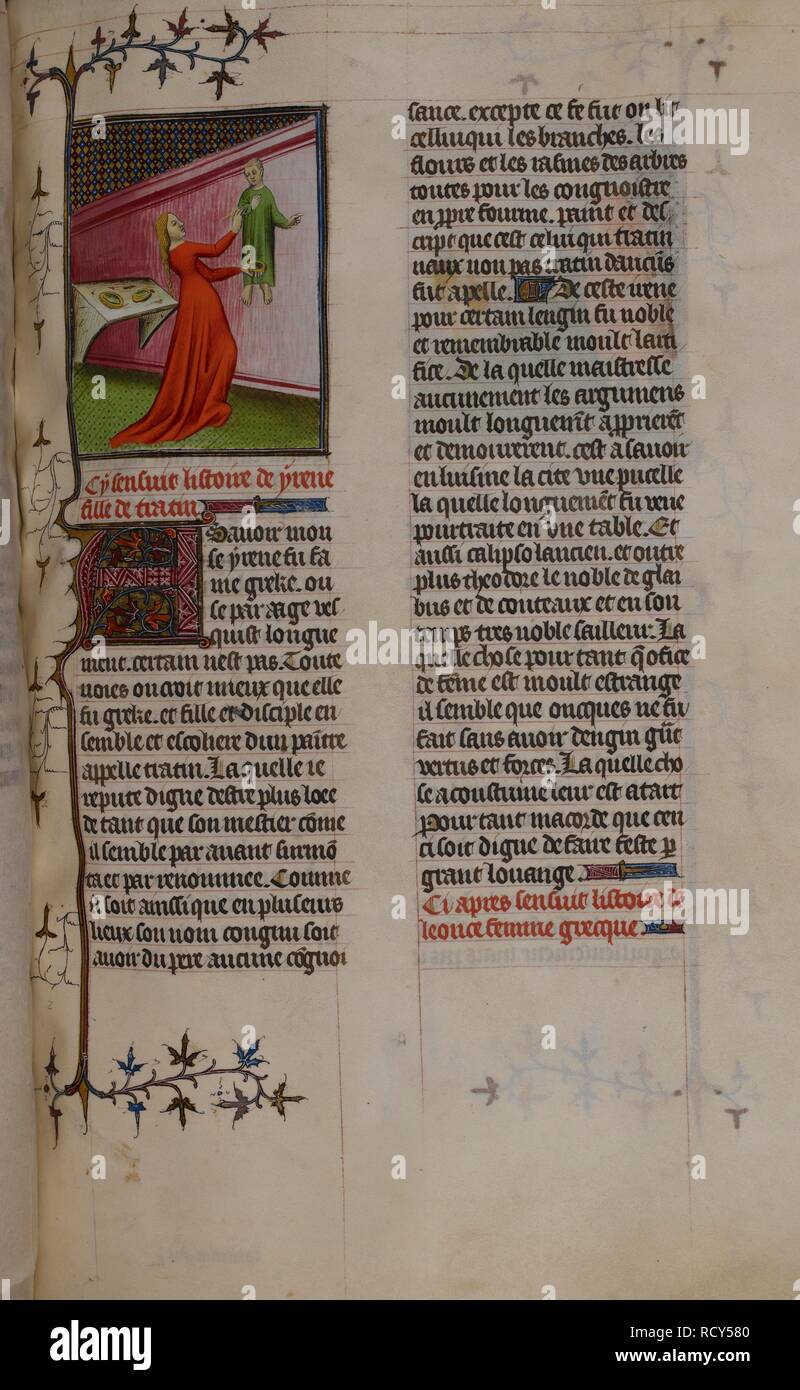 Cy sensuit listoire de yrene
fille de cratin
A Savoir mon
se yrene fu fa
me greke. ou
se par aage ves
quist longue
ment. certain nest pas. Toute
voies on croit mieux que elle
fu greke. et fille et disciple en
semble et escoliere dun paintre
appelle cratin. Laquelle ie
repute digne destre plus loee
de tant que son mestier come
il semble par auant surmo
ta et par renommee. Comme
il soit ainssi que en pluseurs
lieux son nom congnu soit
auoir du pere aucune cognoi
sance. excepte ce se fut on
cellui qui les branches. les
flours et les racines des arbres
toutes pour les congnoistre
en ppre fourme. paint et des
cript que cest celui qui cratin
non pas cratin
fut apelle. De ceste
pour certain lengin fu noble
et remembrable moult lar
fice. De la quelle maistresse
aucunement les argumens
moult longuemt apprierent
et demourerent. cest a savoir
en la cite une pucelle
la quelle longuemet fu vene
pourtraite en une table. Et
aussi calipso lancien. et outre
plus theodore le noble de glai
bus et de couteaux et en son
temps tres noble sailleur. La
quele chose pour tant q ofice
de feme est moult estrange
il semble que oncques ne fu
fait sans auoir dengin
vertus et forces. La quelle cho
se acoustume leur est a tart
Pour tant macorde que cen
ci soit digne de faire feste p
grant louange.
Ci apres sensuit listoire
leonce femme grecque
alamy
Image ID: RCY580
www.alamy.com